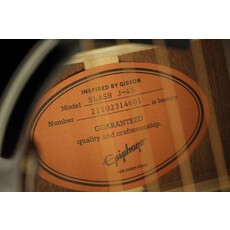 INSPIRED BY GIBSON
Model SLASH J-45
Number 21102314001 is hereby
GUARANTEED
quality and craftsmanship.
Epiphone